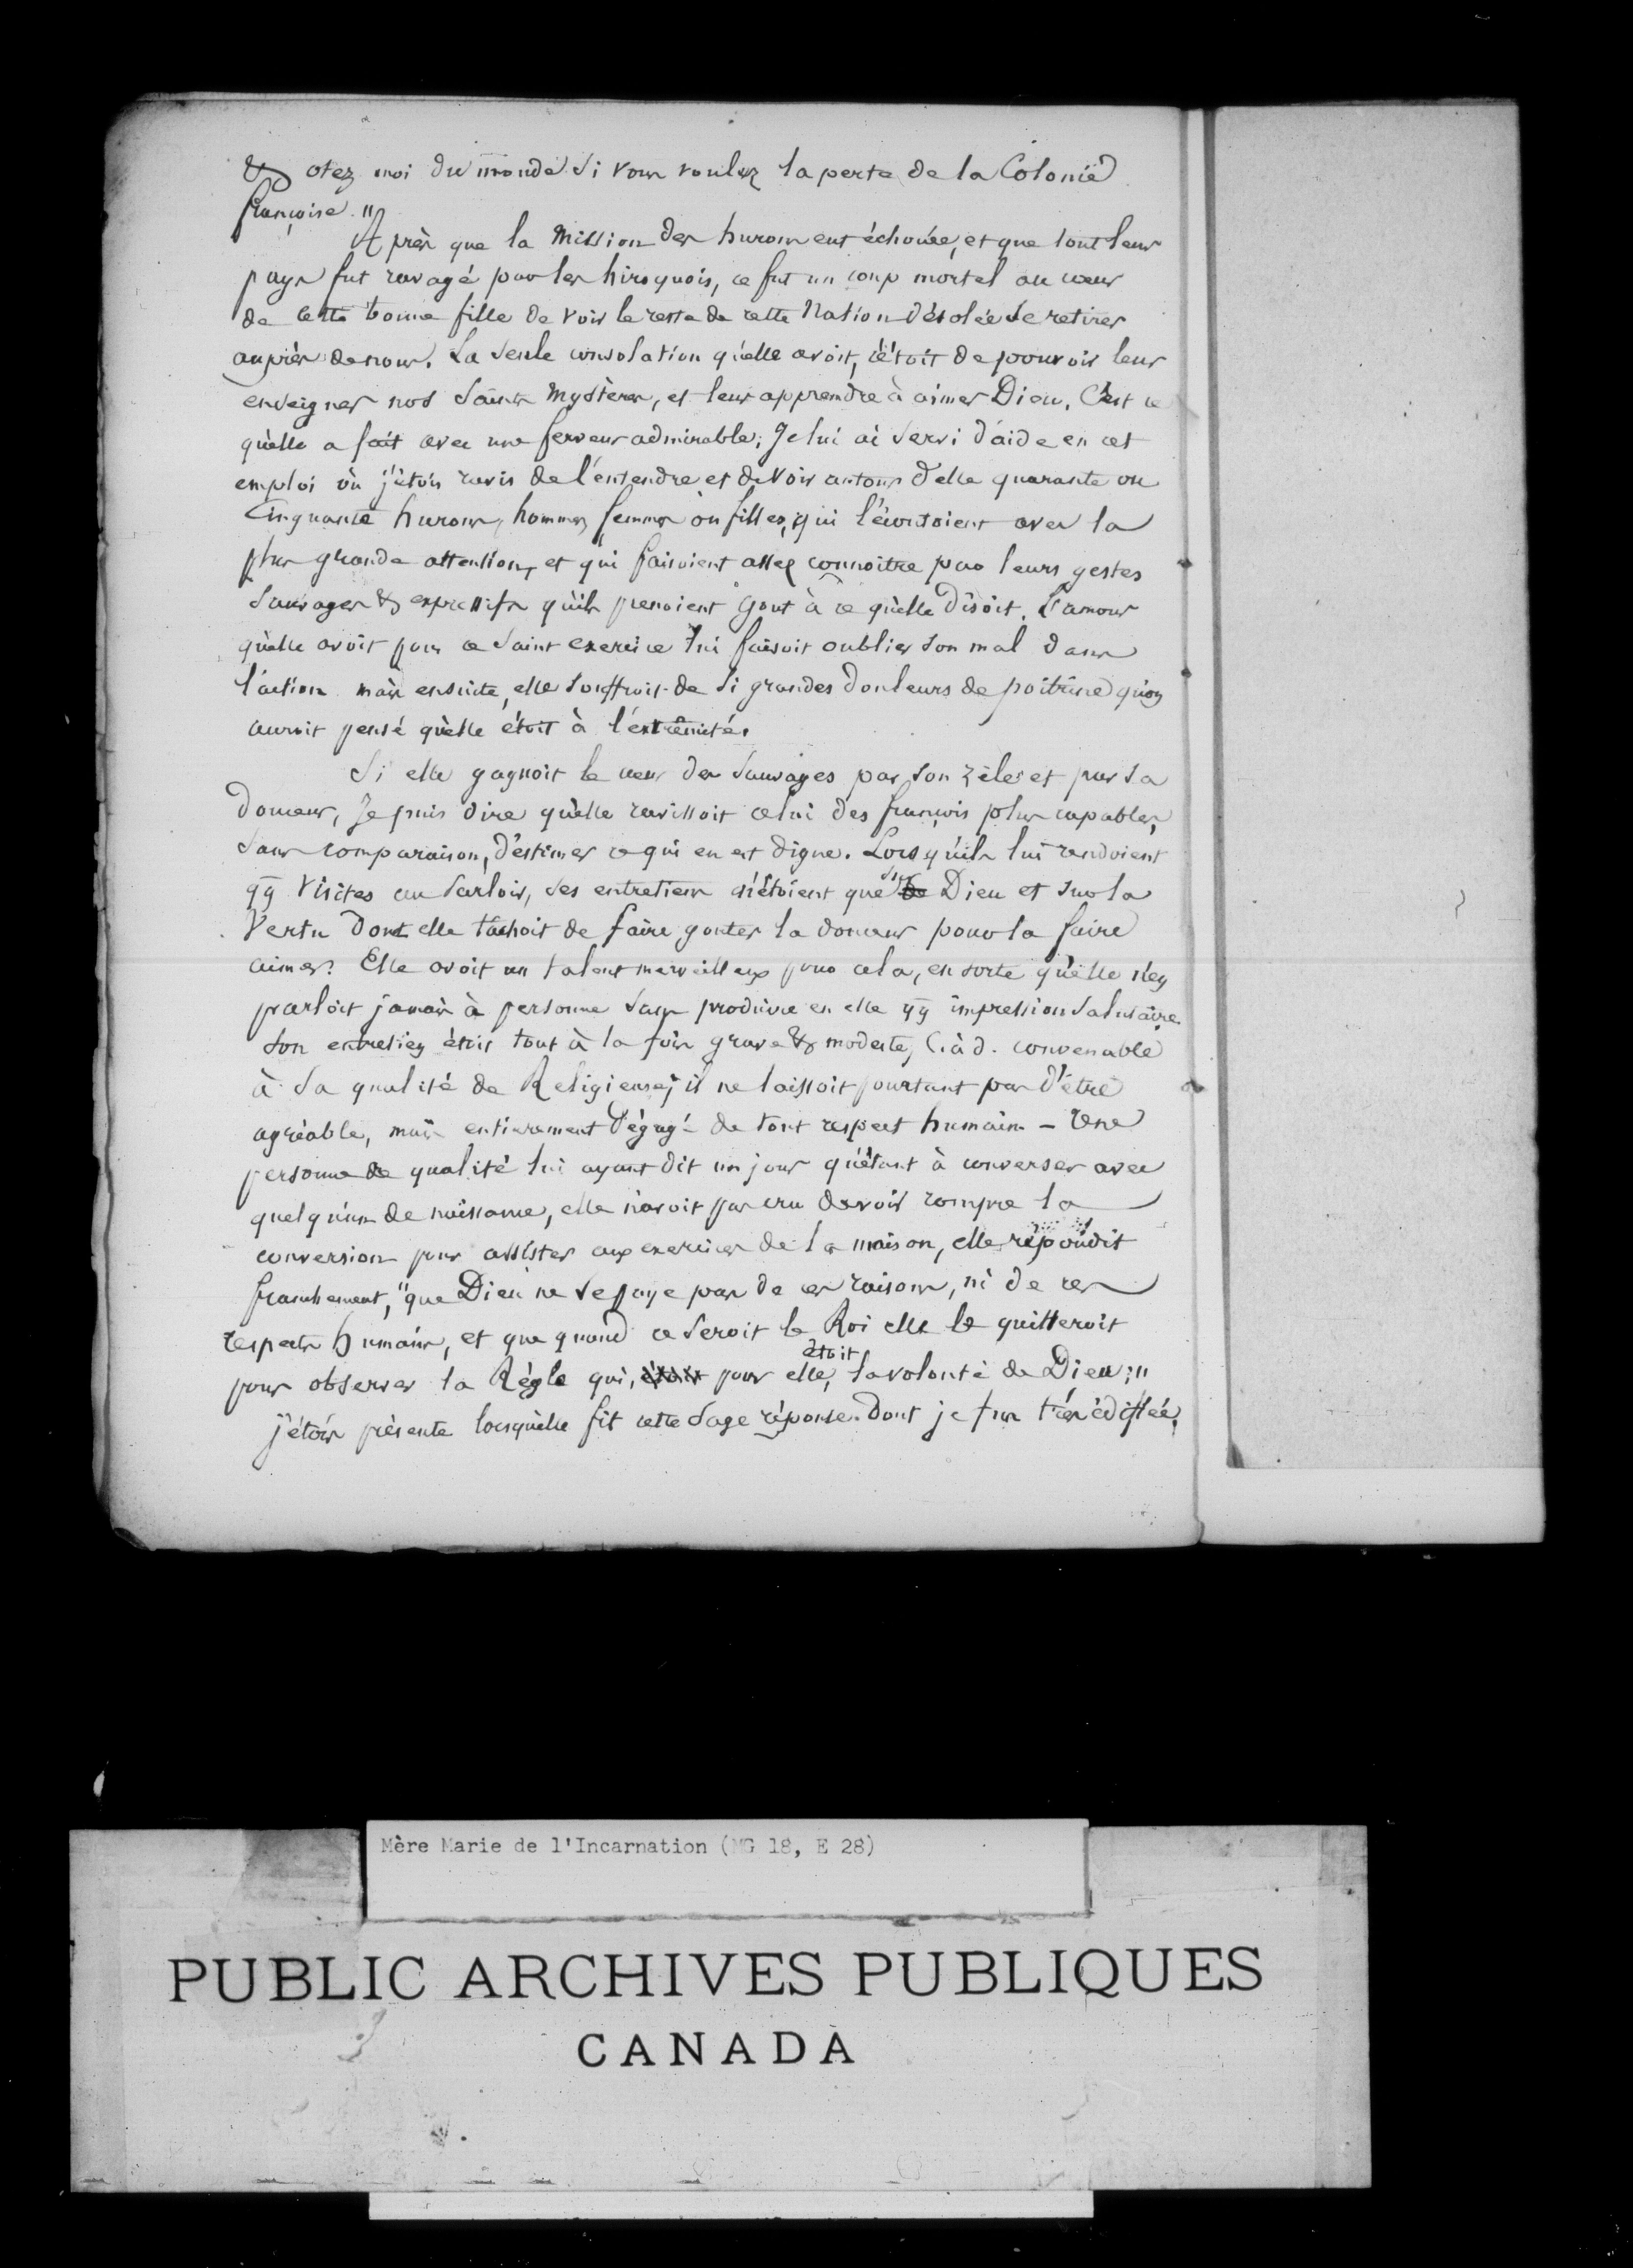 & otez moi du monde si vous voulez la perte de la Colonie
françoise."
Après que la Mission des hurons eut échouée, et que tout leur
pays fut ravagé par les hiroquois, ce fut un coup mortel au cœur
de cette bonne fille de voir le reste de cette Nation désolée se retirer
auprès de nous. La seule consolation qu'elle avoit, c'étoit de pouvoir leur
enseigner nos saints Mystères, et leur apprendre à aimer Dieu. C'est ce
qu'elle a fait avec une ferveur admirable; Je lui ai servi d'aide en cet
emploi où j'étois ravis de l'entendre et de voir autour d'elle quarante ou
Cinquante hurons, hommes, femmes où filles, qui l'écoutoient avec la
plus grande attention, et qui faisoient assez connoître par leurs gestes
Sauvages & expressifs qu'ils prenoient gout à ce qu'elle disoit. L'amour
qu'elle avoit pour ce saint exercice lui faisoit oublier son mal dans
l'action mais ensuite, elle souffroit de si grandes douleurs de poitrine qu'on
auroit pensé qu'elle étoit à l'extrêmité.
Si elle gagnoit le cœur des Sauvages par son zèle et par sa
douceur, Je puis dire qu'elle ravissoit celui des françois plus capables,
sans comparaison, d'estimer ce qui en est digne. Lorsqu'ils lui rendoient
qq visites au Parloir, ses entretiens n'étoient que sur de Dieu et sur la
Vertu dont elle tâchoit de faire gouter la douceur pour la faire
aimer. Elle avoit un talent merveilleux pour cela, en sorte qu'elle n'en
parloit jamais à personne sans produire en elle qq impression salutaire.
Son entretien étoit tout à la fois grave & modeste, c.à d. convenable
à sa qualité de Religieuse; il ne laissoit pourtant pas d'être
agréable, mais entierement dégagé de tout respect humain - Une
personne de qualité lui ayant dit un jour qu'étant à converser avec
quelqu'un de naissance, elle n'avoit pas cru devoir rompre la
conversion pour assister aux exercices de la maison, elle répondit
franchement, "que Dieu ne se paye pas de ces raisons, ni de ces
respects humains, et que quand ce seroit le Roi elle le quitteroit
pour observer la Règle qui, étoit pour elle, étoit la volonté de Dieu;"
j'étois présente lorsqu'elle fit cette sage réponse dont je fus très édifiée.
Mère Marie de l'Incarnation (MG 18, E 28)
PUBLIC ARCHIVES PUBLIQUES
CANADA